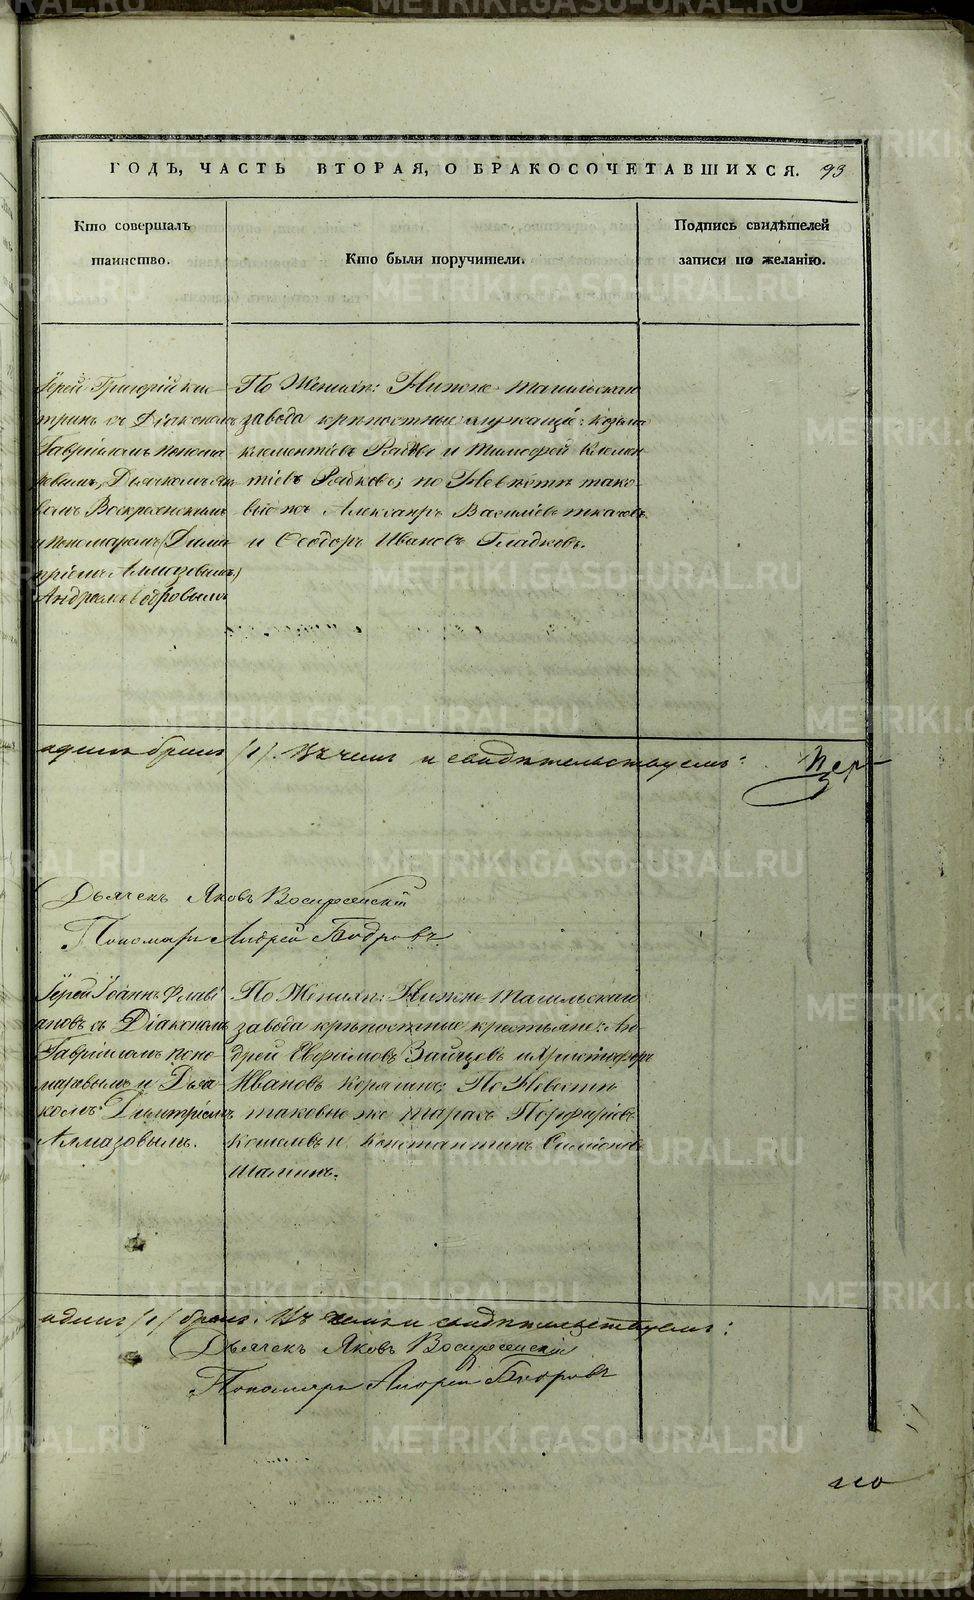 ГОДЪ, ЧАСТЬ ВТОРАЯ, О БРАКОСОЧЕТАВШИХСЯ. 93
Кто совершалъ
таинство.
Кто были поручители.
Подпись свидѣтелей
записи по желанію.
Іерей Григорій Кас-
тринъ съ Діакономъ
Гавріиломъ Понома-
ревымъ, Дьячкомъ Як
Воскресенскимъ
и пономаремъ Дими-
тріемъ Алмазовымъ
Андреемъ Бобровымъ
По Женихѣ: Нижне-Тагильскаго
завода крѣпостные служащіе: Козьма
Клементіевъ Рябовъ и Тимоѳей Клемен-
тіевъ Рябковъ; по Невѣстѣ тако-
выеже Александръ Василіевъ Ткачевъ
и Ѳеодоръ Ивановъ Гладковъ.
одинъ бракъ /1/. Въ чемъ и свидѣтельствуемъ: Цер-
Дьячекъ Яковъ Воскресенскій
Пономарь Андрей Бобровъ
Іерей Іоаннъ Флаві-
ановъ съ Діакономъ
Гавріиломъ Поно-
маревымъ и Дья-
комъ Димитріемъ
Алмазовымъ.
По Женихѣ: Нижне-Тагильскаго
завода крѣпостные крестьяне: Ан-
дрей Евфимовъ Зайцевъ и Христофоръ
Ивановъ Корякинъ; По Невѣстѣ
таковые же Тарасъ Порфиріевъ
Кошелевъ и Константинъ Симеоновъ
Шаминъ.
одинъ /1/ бракъ. Въ чемъ и свидѣтельствуемъ:
Дьячекъ Яковъ Воскресенскій
Пономарь Андрей Бобровъ
METRIKI.GASO-URAL.RU